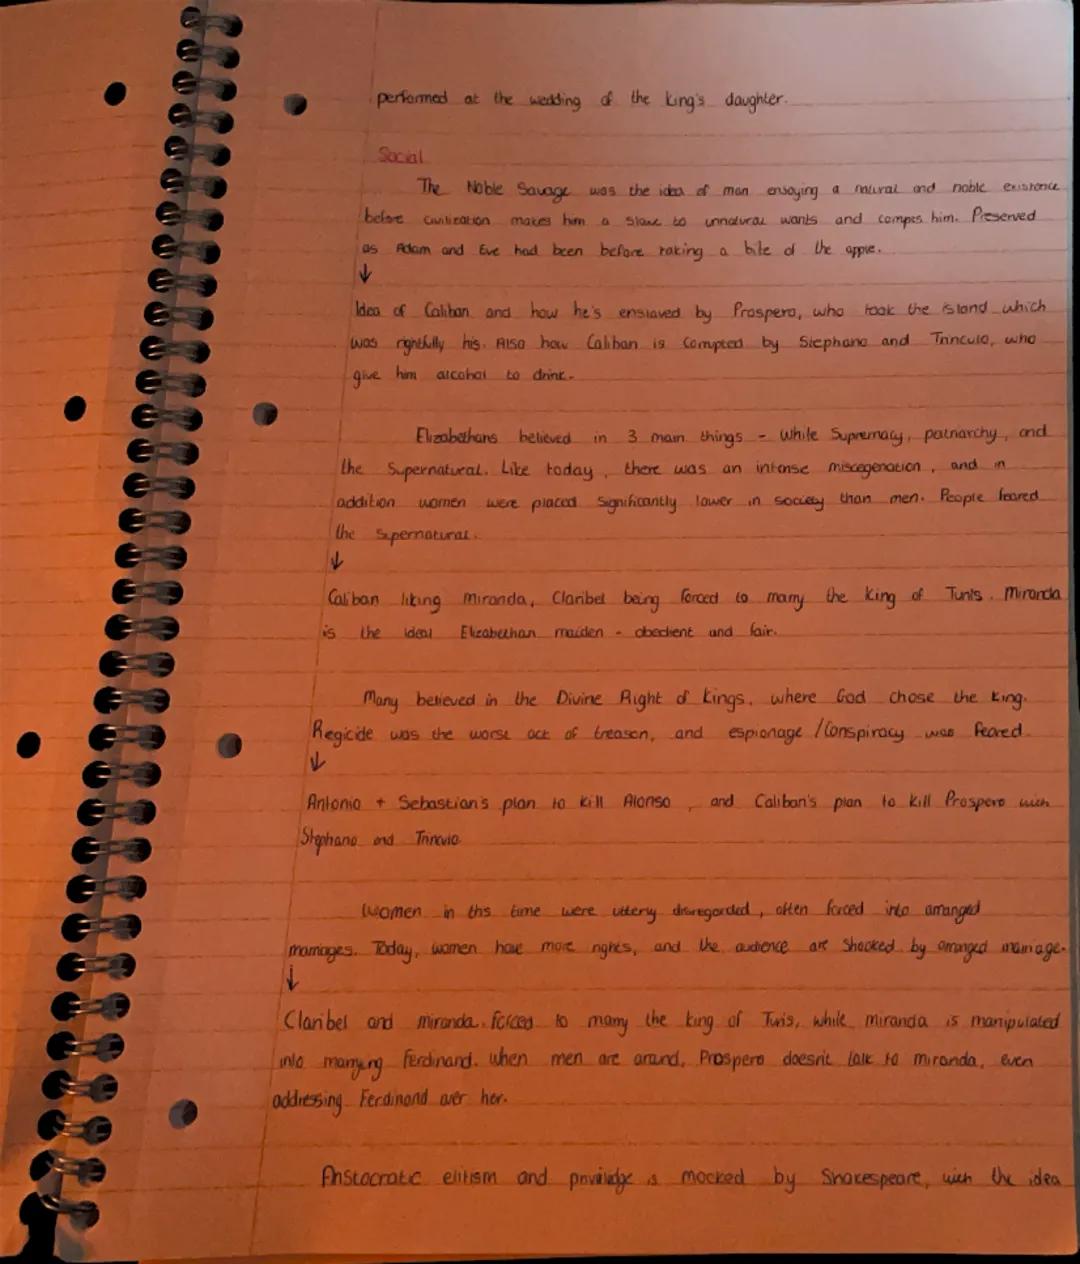 performed at the wedding of the King's daughter.
Social
The Noble Savage was the idea of man enjoying a natural and noble existence
before civilization makes him a slave to unnatural wants and corrupts him. Preserved
as Adam and Eve had been before taking a bite of the apple.
↓
Idea of Caliban and how he's enslaved by Prospero, who took the island which
was rightfully his. Also how Caliban is corrupted by Stephano and Trinculo, who
give him alcohol to drink.
Elizabethans believed in 3 main things - White Supremacy, patriarchy, and
the Supernatural. Like today, there was an intense miscegenation, and in
addition women were placed significantly lower in society than men. People feared
the supernatural.
↓
Caliban liking Miranda, Claribel being forced to marry the King of Tunis. Miranda
is the ideal Elizabethan maiden - obedient and fair.
Many believed in the Divine Right of Kings, where God chose the King.
Regicide was the worse act of treason, and espionage / Conspiracy was feared.
↓
Antonio + Sebastian's plan to kill Alonso, and Caliban's plan to kill Prospero with
Stephano and Trinculo
Women in this time were utterly disregarded, often forced into arranged
marriages. Today, women have more rights, and the audience are shocked by arranged marriage.
↓
Claribel and miranda. forced to marry the king of Tunis, while miranda is manipulated
into marrying Ferdinand. When men are around, Prospero doesn't talk to miranda, even
addressing Ferdinand over her.
Aristocratic elitism and priviledge is mocked by Shakespeare, with the idea